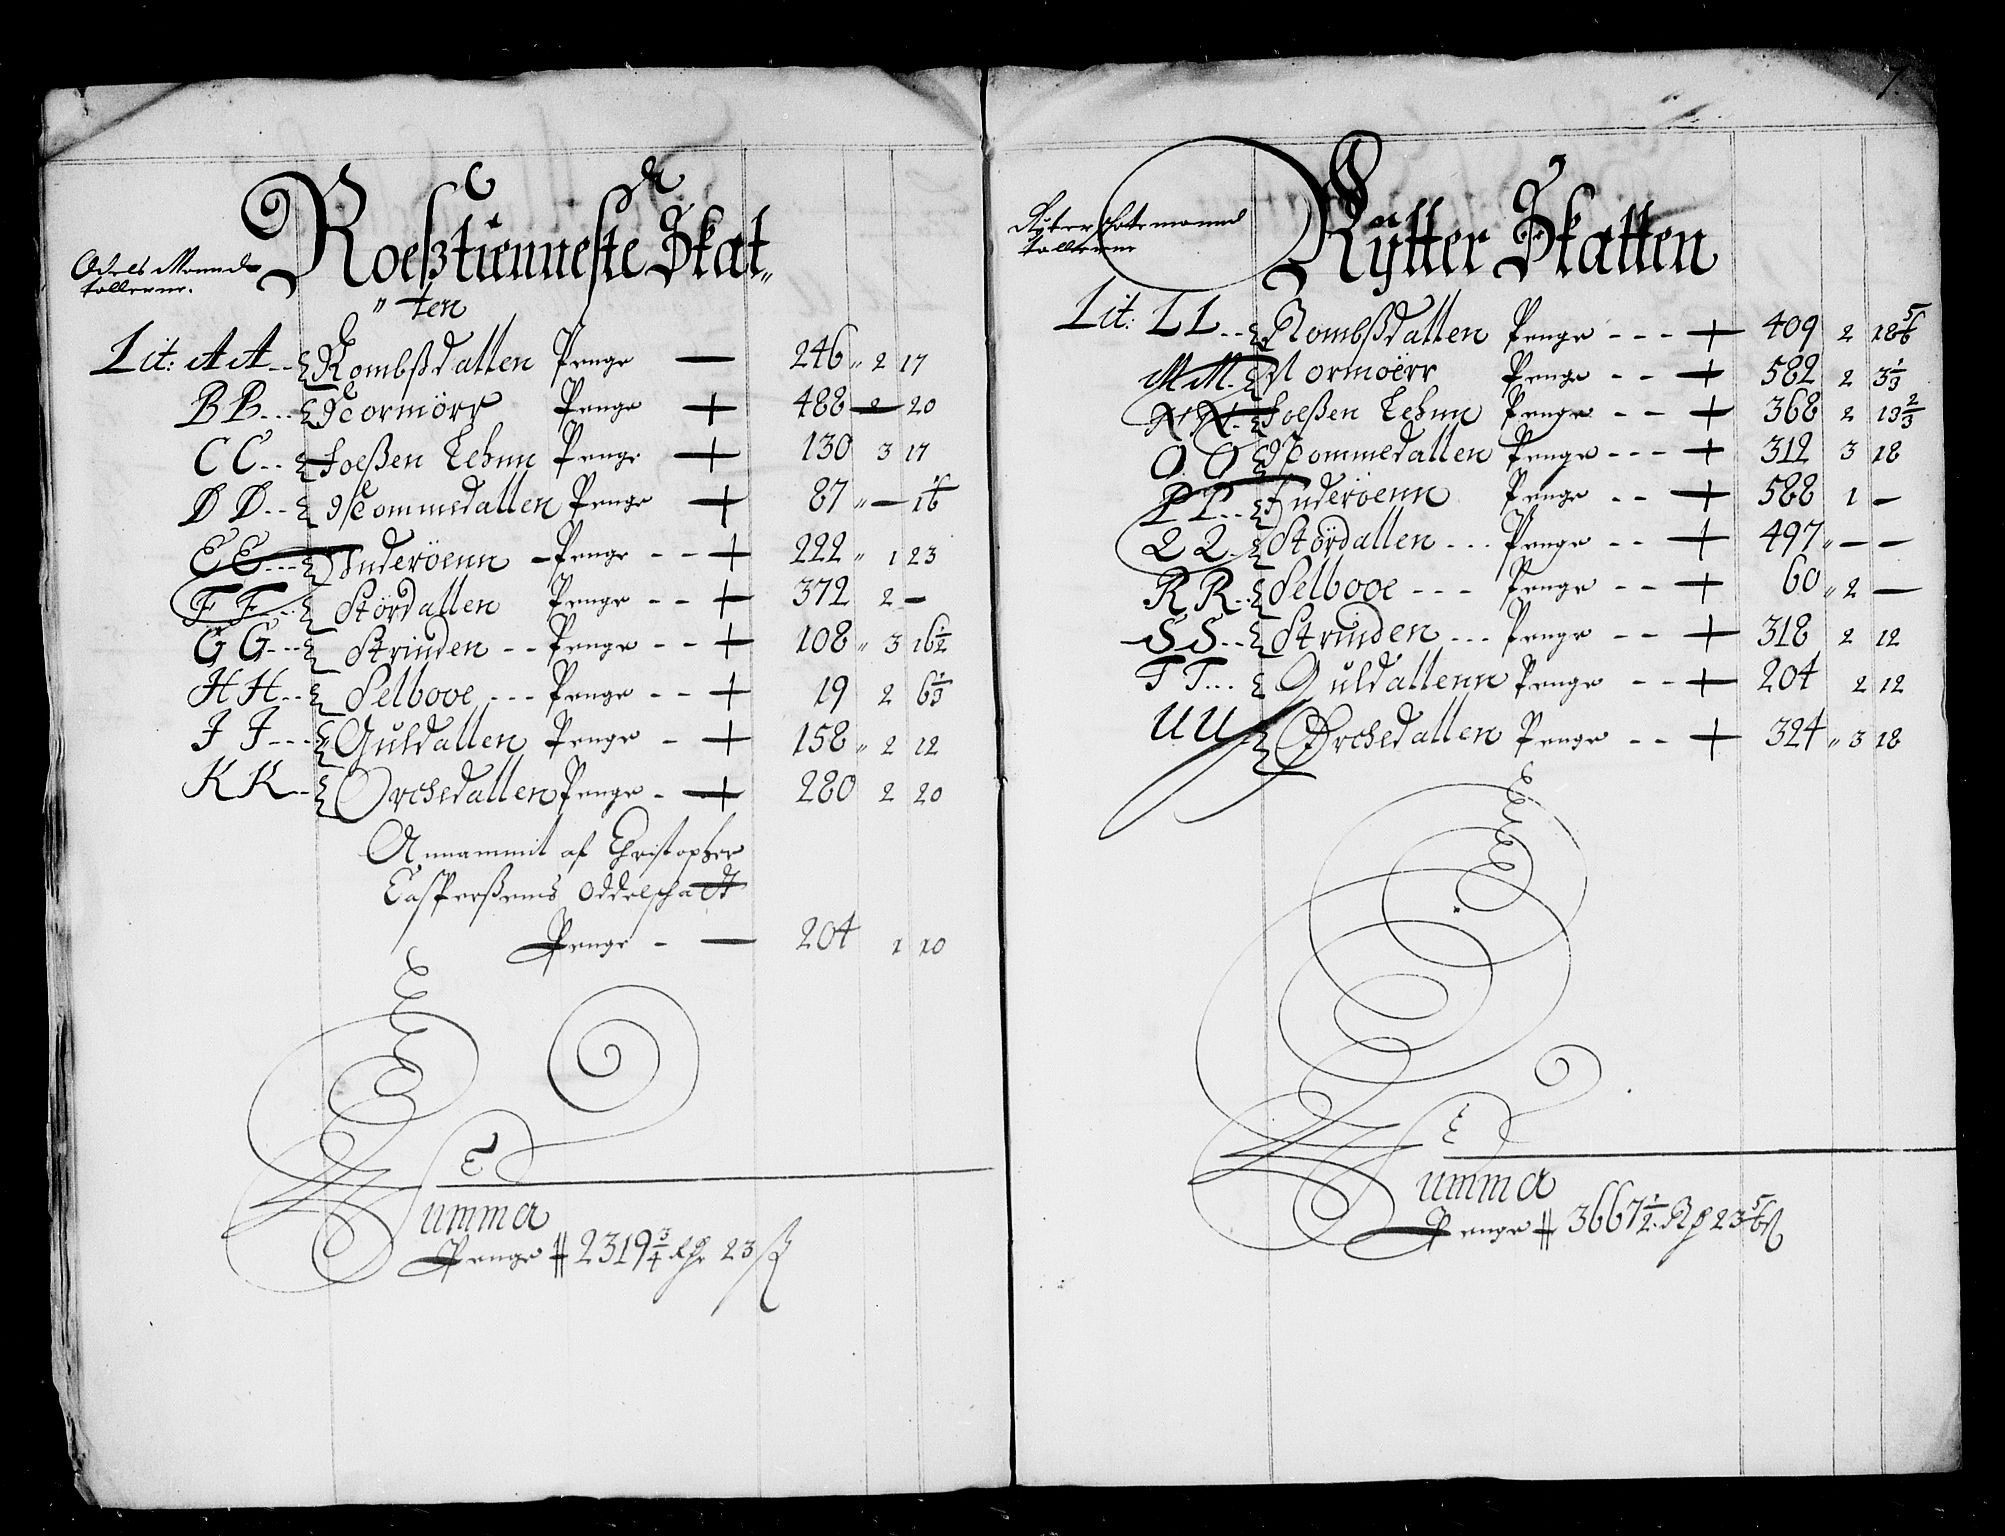 Roeßtienneste Skat„
„ten
Odels Mannds
tallerne.
Lit: AA Rombßdallen Penge — 246 „ 2 17
BB Normörr Penge + 488 — 2 — 20
CC Foeßen Lehnn Penge + 130 3 17
DD Nommedallen Penge + 87 „ — 1/6
EE Inderöenn — Penge + 222 „ 1 23
FF Stördallen Penge + 372 2 —
GG Strinden Penge + 108 „ 3 16 1/2
HH Selboe Penge + 19 2 6 1/3
II Guldallen Penge + 158 „ 2 12
KK Orchedallen Penge + 280 2 20
Annammit af Christopher
Casperßenns Oddelschatt
Penge — 204 1 10
Summa
Penge # 2319 3/4 Rdr 23 ß
7.
Rytter Skatten
Ryter tallerne
Lit: LL Rombßdallen Penge + 409 2 18 5/6
MM Normöerr Penge + 582 2 3 1/3
NN Foeßen Lehnn Penge + 368 2 13 2/3
OO Nommedallen Penge + 312 3 18
PP Inderöenn Penge + 588 1 —
QQ Stördallen Penge + 497 „ — —
RR Selboe Penge + 60 „ 2 —
SS Strinden Penge + 318 2 12
TT Guldallenn Penge + 204 2 12
UU Orchedallen Penge + 324 „ 3 18
Summa
Penge # 3667 1/2 Rd 23 5/6 ß